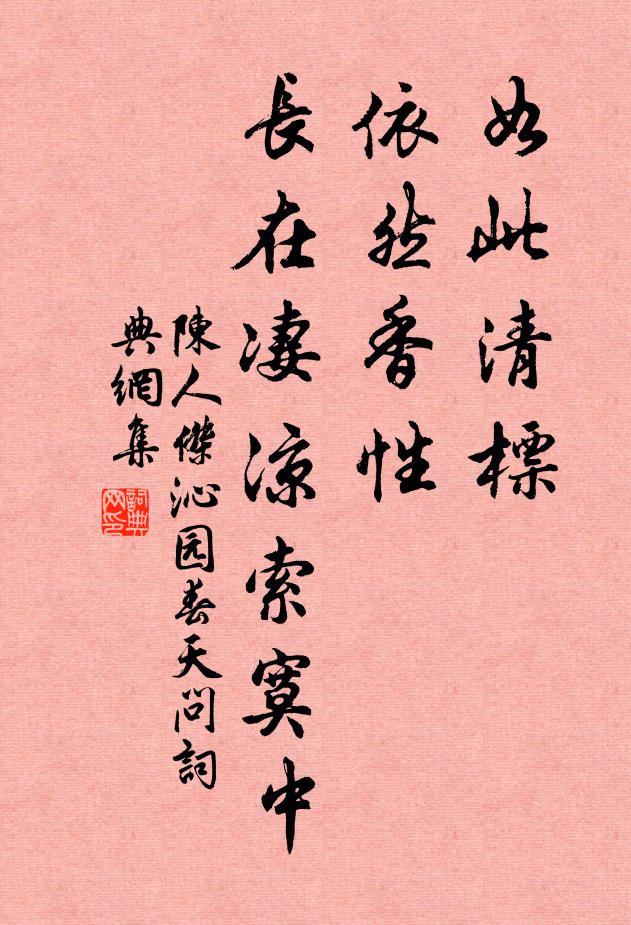 如此清標
依然香性
長在凄涼索寞中
陳人傑沁园春天問詞
典網集
詞典網印